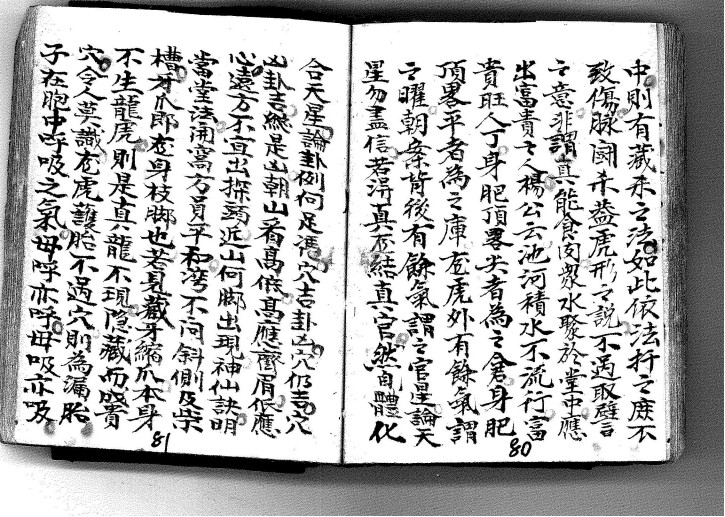 中則有藏杀之法如此依法扦之庶不
致傷脉鬪杀葢虎形之說不過取譬言
之意非謂真能食肉衆水聚於堂中應
出富貴之人楊公云池河積水不流行富
貴旺人丁身肥頂畧尖者為之倉身肥
頂畧平者為之庫龙虎外有餘氣謂
之曜朝案背後有餘氣謂之官星論天
星勿盡信若淂真龙結真官然自體化
80
合天星論卦例何足馮穴吉卦凶穴仍吉穴
凶卦吉總是凶朝山看高低高應齊眉低應
心遠方不宜出探頭近山何脚出現神仙訣明
當堂法開窩方員平和湾不问斜側及柴
槽牙爪郎龙身枝脚也若見藏牙縮爪本身
不生龍虎則是真龍不現隐藏而成貴
穴令人莫識龙虎護胎不過穴則為漏胎
子在胞中呼吸之氣母呼亦呼母吸亦吸
81